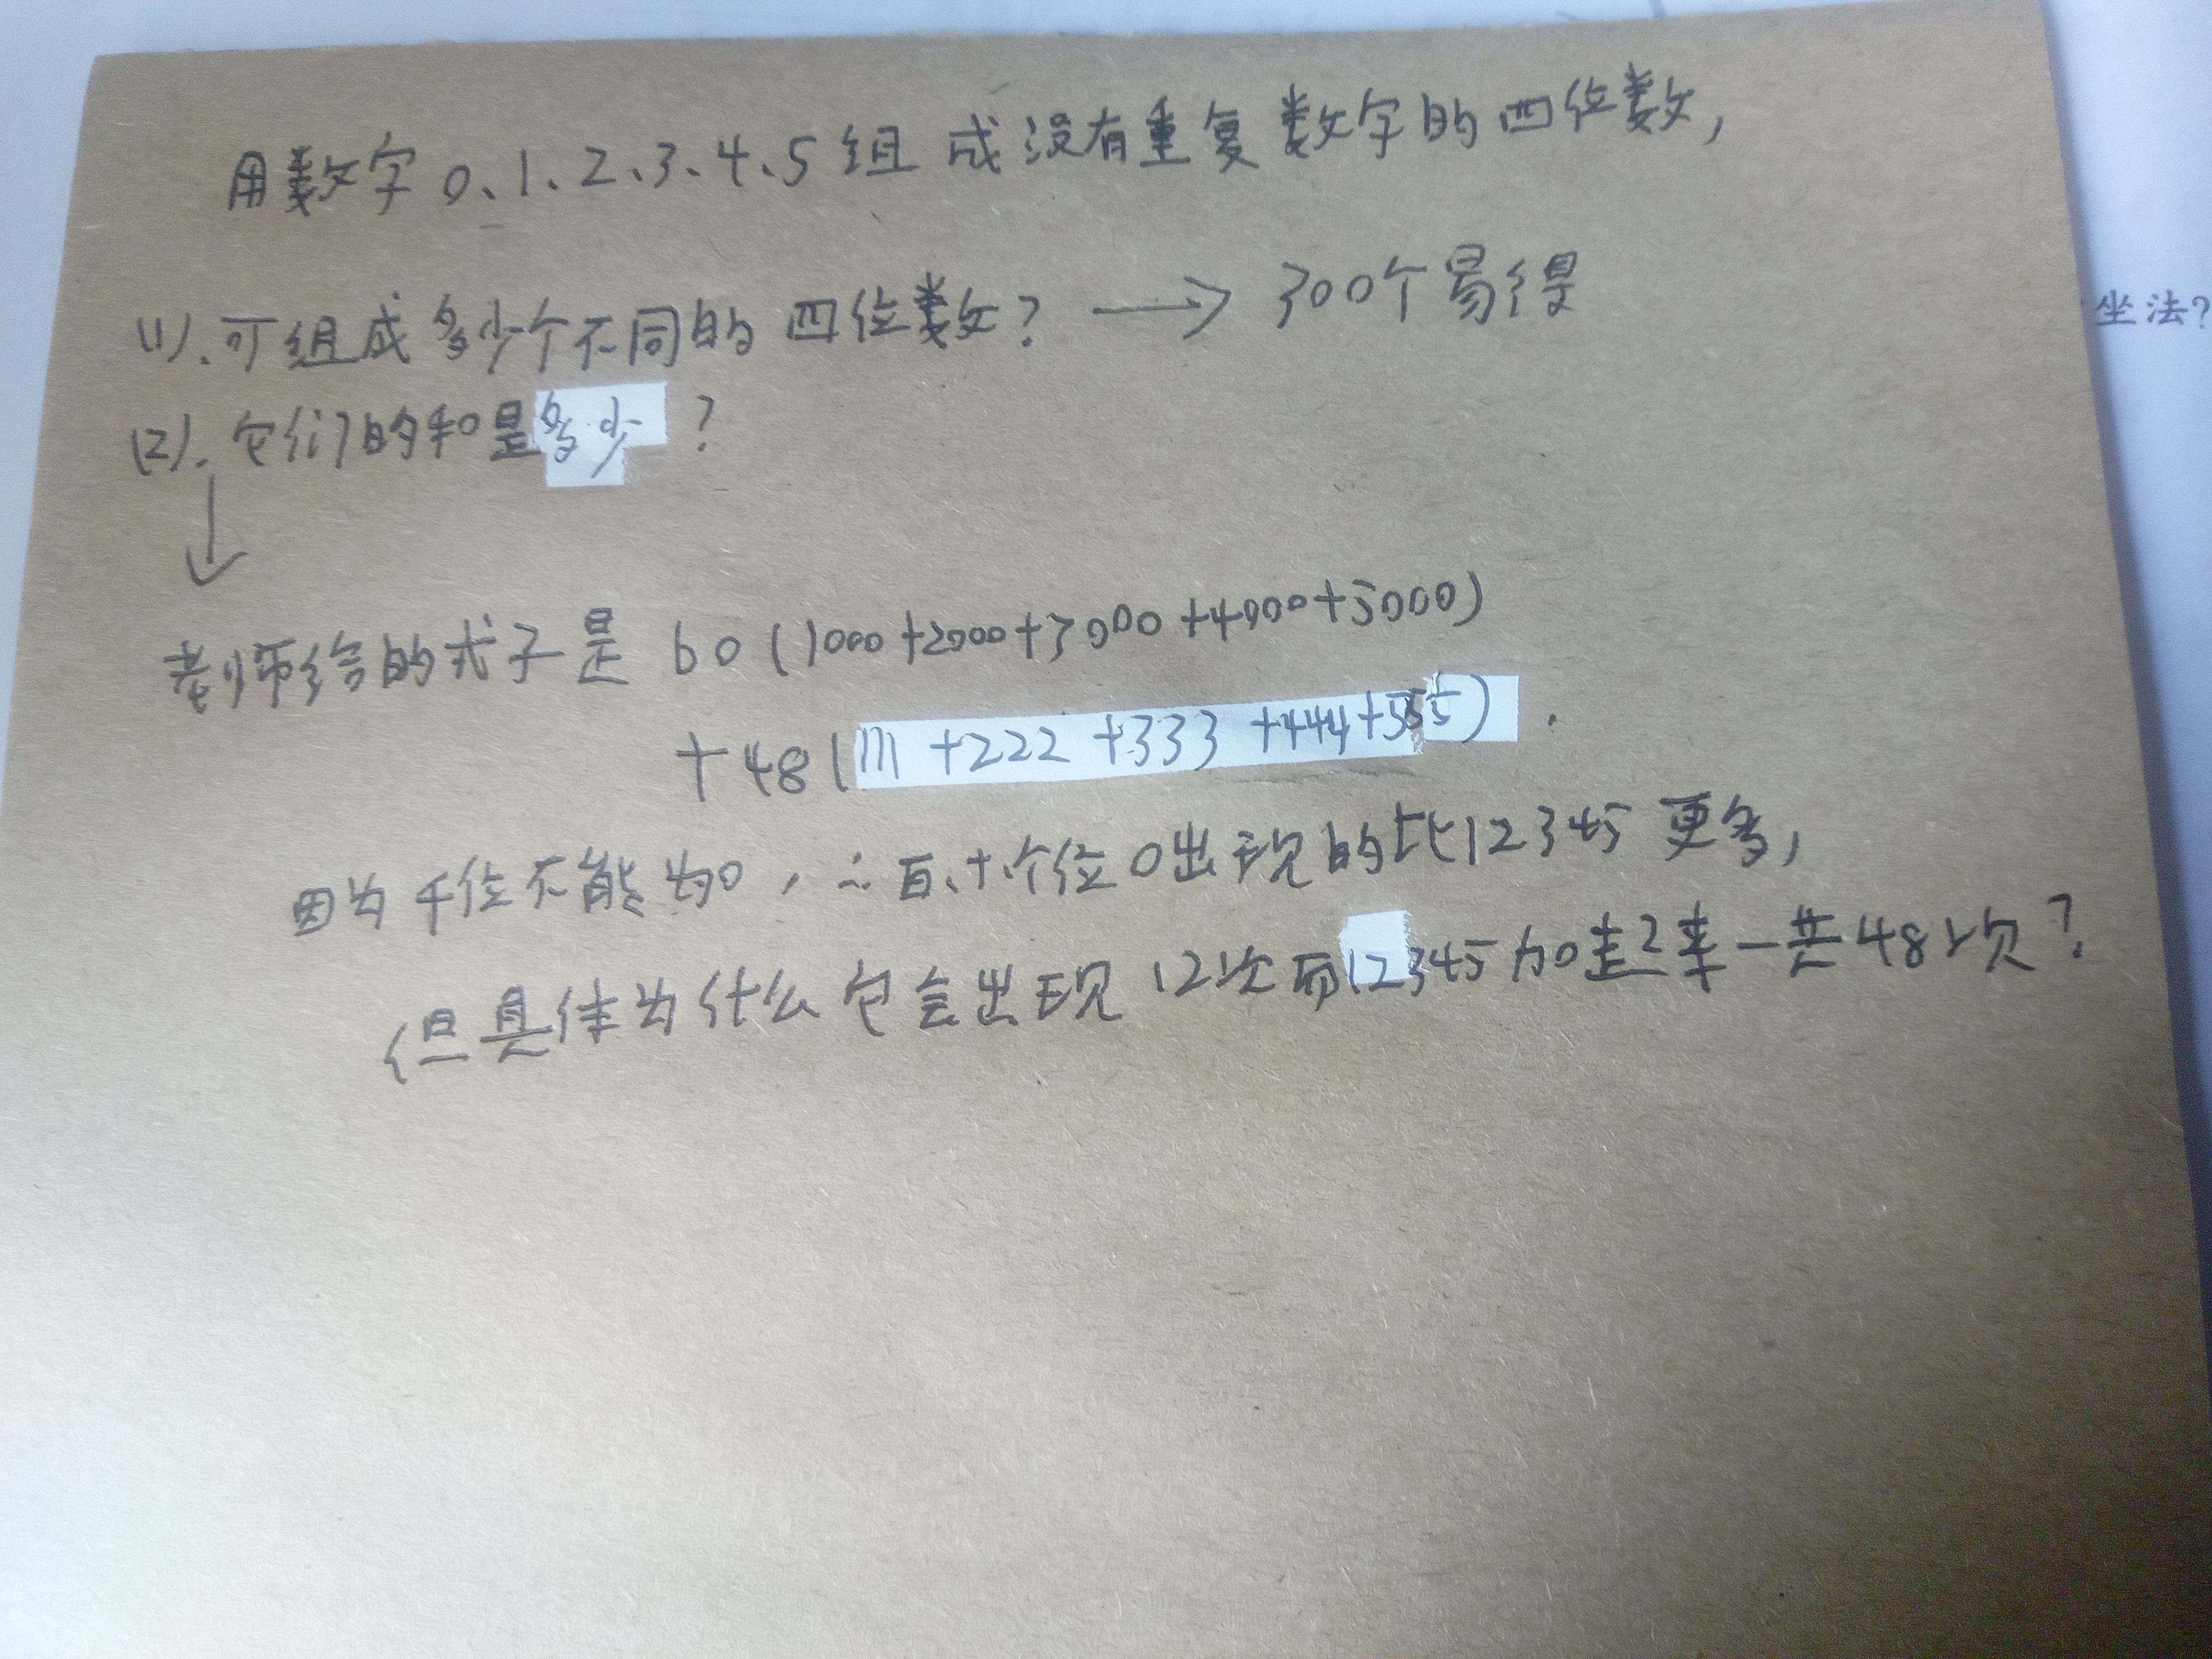 用数字0、1、2、3、4、5组成没有重复数字的四位数,
(1).可组成多少个不同的四位数? → 300个易得
坐法?
(2).它们的和是多少?
↓
老师给的式子是 60(1000+2000+3000+4000+5000)
+48(111+222+333+444+555).
因为千位不能为0,∴百、十、个位0出现的比12345更多,
但具体为什么它会出现12次而12345加起来一共48次?